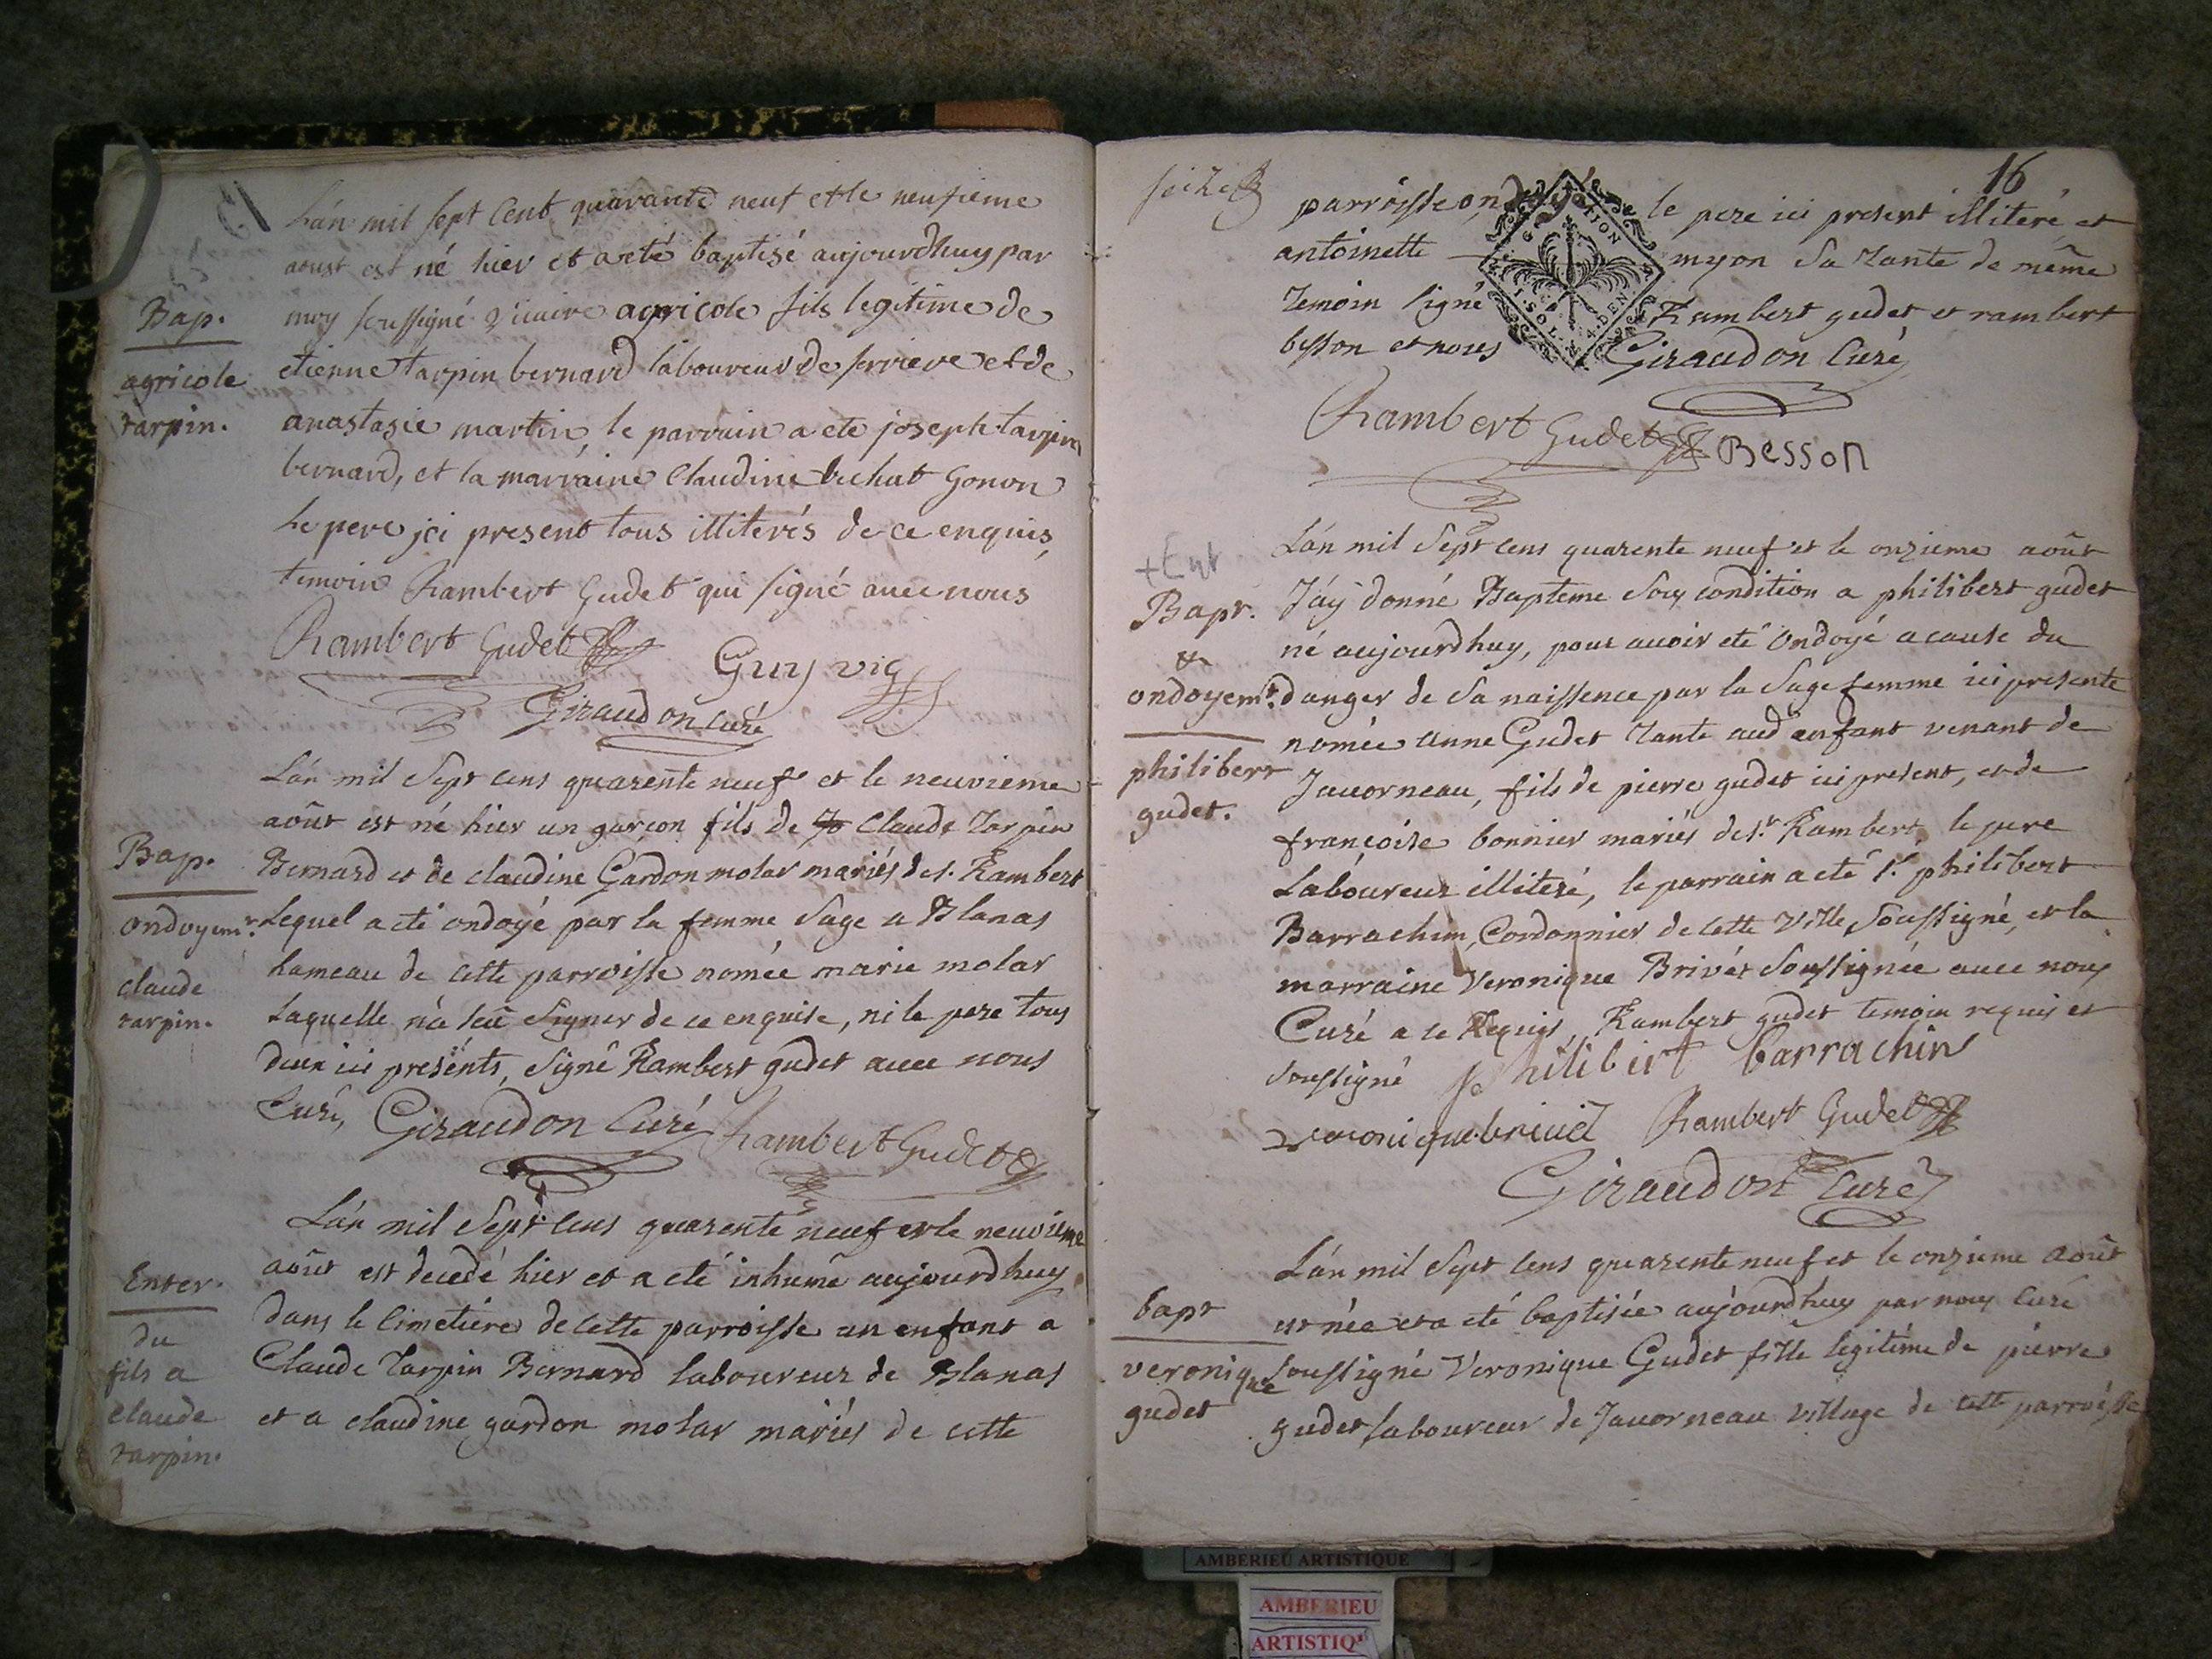 Bap.
agricole
tarpin.
L'án mil sept Cent quarante neuf et le neufieme
aoust est né hier et a eté baptisé aujourdhuy par
moy soussigné vicaire agricole fils legitime de
etienne tarpin bernard laboureur de serriere et de
anastasie martin, le parrain a ete joseph tarpin
bernard, et la marraine Claudine Gonon
Le pere jci present tous illiterés de ce enquis,
temoin Rambert Gudet qui signé avec nous
Rambert Gudet
Guy vic
Giraudon Curé
Bap.
ondoyemt.
claude
tarpin.
L'án mil Sept cens quarente neuf et le neuvieme
aôut est né hier un garçon fils de Claude Tarpin
Bernard et de claudine Gardon molar mariés de s. Rambert
Lequel a eté ondoyé par la femme Sage a Blanas
hameau de cette parroisse nomée marie molar
Laquelle n'a sçû Signer de ce enquise, ni le pere tous
deux ici présents, Signé Rambert gudet avec nous
Curé, Giraudon Curé
Rambert Gudet
Enter.
du
fils a
claude
tarpin.
L'án mil Sept Cens quarente neuf et le neuvieme
aôut est decedé hier et a eté inhumé aujourdhuy
dans le Cimetiere de cette parroisse un enfant a
Claude Tarpin Bernard laboureur de Blanas
et a claudine gardon molar mariés de cette
seize
16
parroisse le pere ici present illiteré et
antoinette myon Sa Tante de même
Temoin signé Rambert gudet et rambert
besson et nous Giraudon Curé
Rambert Gudet
Besson
+Ent
Bapt.
&
ondoyemt.
philibert
gudet.
L'án mil Sept cens quarente neuf et le onzieme aôut
J'áy donné Bapteme Sous condition a philibert gudet
né aujourdhuy, pour avoir eté Ondoyé a cause du
danger de Sa naissence par la Sage femme ici presente
nomée anne Gudet Tante aud enfant venant de
Javorneau, fils de pierre gudet ici present, et de
françoise bonnier mariés de st. Rambert, le pere
Laboureur illiteré, le parrain a eté sr. philibert
Barrachin, Cordonnier de cette Ville Soussigné, et la
marraine Veronique Brivét Soussignée avec nous
Curé a ce Requis, Rambert gudet temoin requis et
soussigné philibert barrachin
veronique brivet
Rambert Gudet
Giraudon Curé
bapt
veronique
gudet
L'án mil Sept cens quarente neuf et le onzieme aoùt
est née et a eté baptisée aujourdhuy par nous Curé
soussigné Veronique Gudet fille legitime de pierre
gudet laboureur de Javorneau village de cette parroisse
AMBERIEU ARTISTIQUE
AMBERIEU
ARTISTIQ